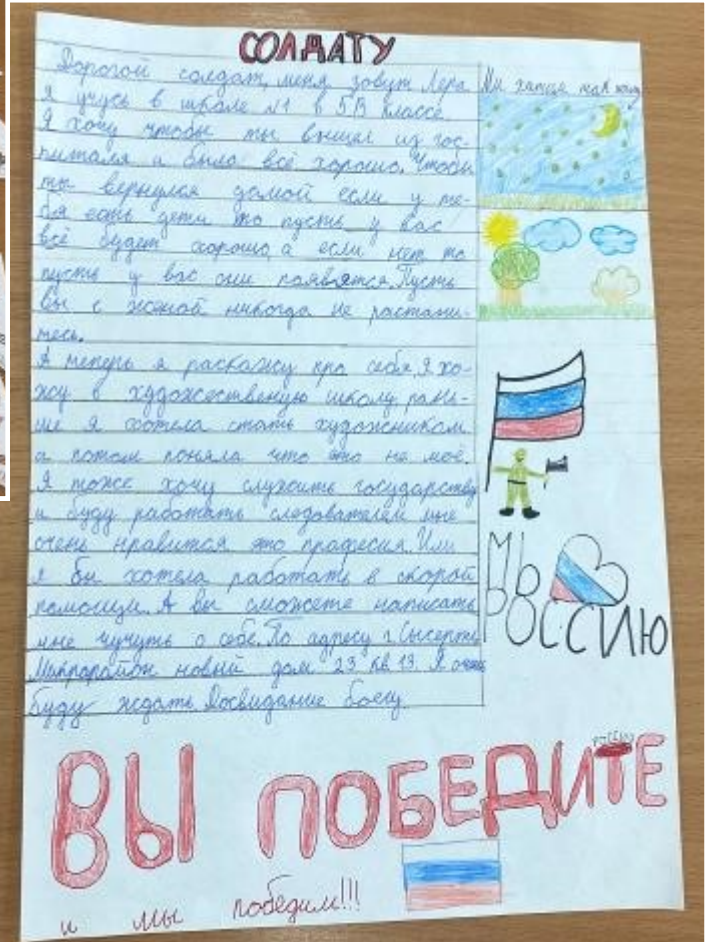 СОЛДАТУ
Дорогой солдат, меня зовут Лера
Я учусь в школе №1 в 5В классе.
Я хочу чтобы ты вышел из гос-
питаля и было всё хорошо. Чтобы
ты вернулся домой если у те-
бя есть дети то пусть у вас
всё будет хорошо, а если нет то
пусть у вас они появятся. Пусть
вы с женой никогда не растани-
тесь.
А теперь я раскажу про себя. Я хо-
жу в художественую школу рань-
ше я хотела стать художником
а потом поняла что это не моё.
Я тоже хочу служить государству
и буду работать следователем мне
очень нравится это професия. Или
я бы хотела работать в скорой
помощи. А вы сможете написать
мне чучуть о себе. По адресу г. Сысерть
Микрорайон новый дом 23 кв 13. Я очень
буду ждать Досвидание боец.
Мы хотим
МЫ
РОССИЮ
ВЫ ПОБЕДИТЕ
и мы победим!!!